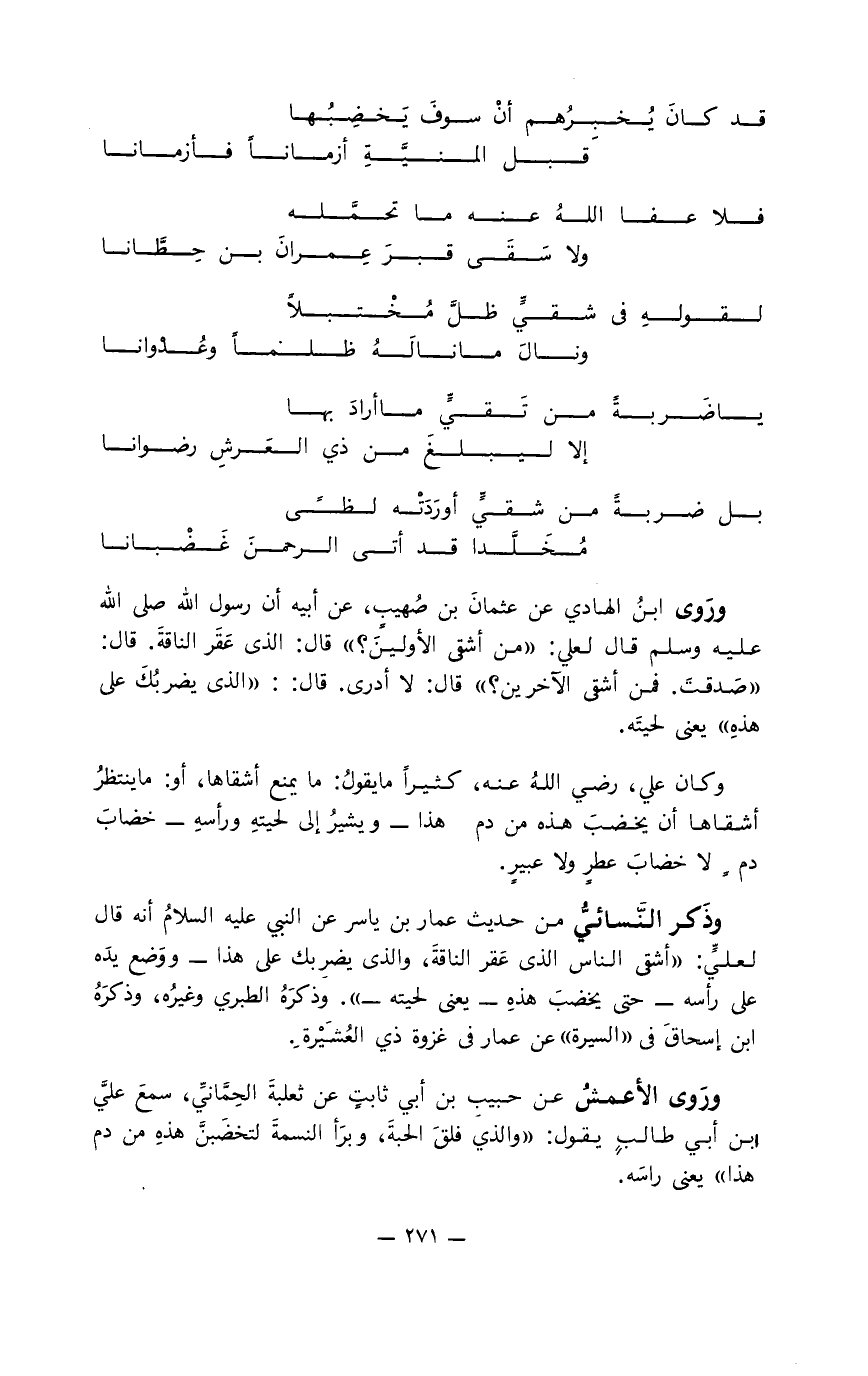 قد كانَ يُخبِرُهم أنْ سوفَ يَخضِبُها
قبل المنيَّةِ أزماناً فأزمانا
فلا عفا اللهُ عنه ما تحمَّله
ولا سَقَى قبرَ عِمرانَ بن حِطَّانا
لقولهِ فى شقيٍّ ظلَّ مُخْتبلاً
ونالَ مانالَهُ ظلماً وعُدْوانا
ياضَربةً من تَقيٍّ ماأرادَ بها
إلا ليبلغَ من ذي العَرشِ رضوانا
بل ضربةً من شقيٍّ أورَدَتْه لظًى
مُخَلَّدا قد أتى الرحمنَ غَضْبانا
ورَوى ابنُ الهادي عن عثمانَ بن صُهيبٍ، عن أبيه أن رسول الله صلى الله
عليه وسلم قال لعلي: «من أشقى الأولينَ؟» قال: الذى عَقَر الناقةَ. قال:
«صَدقتَ. فمن أشقى الآخرين؟» قال: لا أدرى. قال: : «الذى يضربُكَ على
هذهِ» يعنى لحيتَه.
وكان علي، رضي اللهُ عنه، كثيراً مايقولُ: ما يمنع أشقاها، أو: ماينتظرُ
أشقاها أن يخضبَ هذه من دم هذا ــ ويشيرُ إلى لحيتهِ ورأسهِ ــ خضابَ
دمٍ لا خضابَ عطرٍ ولا عبيرٍ.
وذَكر النَّسائيُّ من حديث عمار بن ياسر عن النبي عليه السلامُ أنه قال
لعليٍّ: «أشقى الناس الذى عَقر الناقةَ، والذى يضربك على هذا ــ ووَضع يدَه
على رأسه ــ حتى يخضبَ هذهِ ــ يعنى لحيته ــ». وذكرَهُ الطبري وغيرُه، وذكرَهُ
ابن إسحاقَ فى «السيرة» عن عمار فى غزوة ذي العُشَيْرةِ.
ورَوى الأعمشُ عن حبيبِ بن أبي ثابتٍ عن ثعلبةَ الحِمَّانيِّ، سمعَ عليَّ
ابن أبي طالبٍ يقول: «والذي فلقَ الحبةَ، وبرَأ النسمةَ لتخضَبنَّ هذهِ من دم
هذا» يعنى راسَه.
ــ ٢٧١ ــ